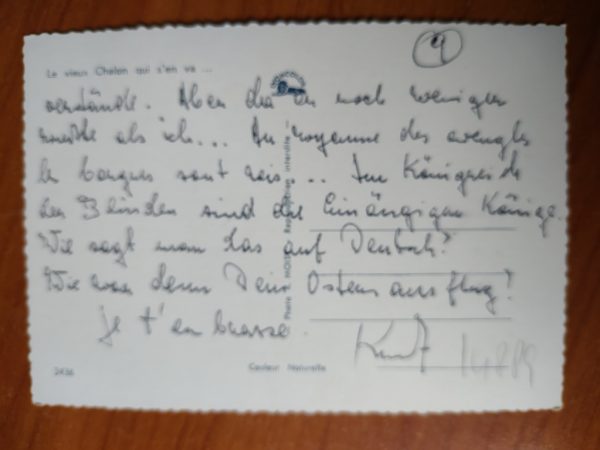 9
Le vieux Chalon qui s'en va ...
verstände. Aber da er noch weniger
wusste als ich... Au royaume des aveugles
les borgnes sont rois... Im Königreich
der Blinden sind die Einäugigen Könige.
Wie sagt man das auf Deutsch?
Wie war denn Dein Osterausflug?
je t'embrasse
Kurt
2436
Couleur Naturelle
Reproduction interdite